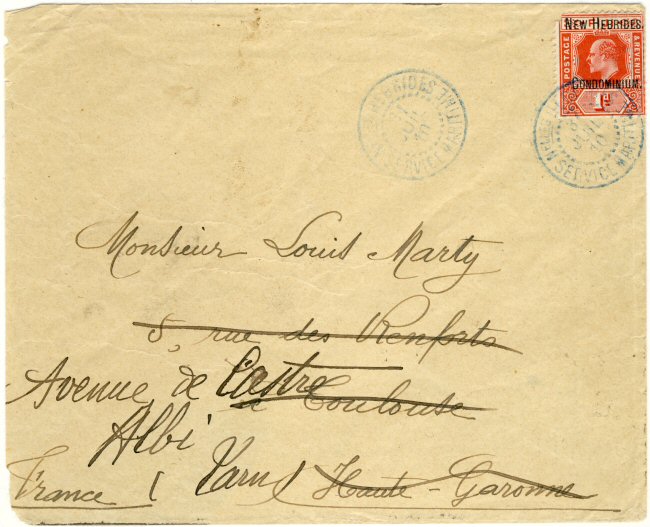 NEW HEBRIDES.
POSTAGE & REVENUE
CONDOMINIUM.
1d
HEBRIDES SERVICE MARITIME
SERVICE MARITIME
Monsieur Louis Marty
5, rue des Renforts
Avenue de Castre
Toulouse
Albi
France ( Tarn ) Haute-Garonne